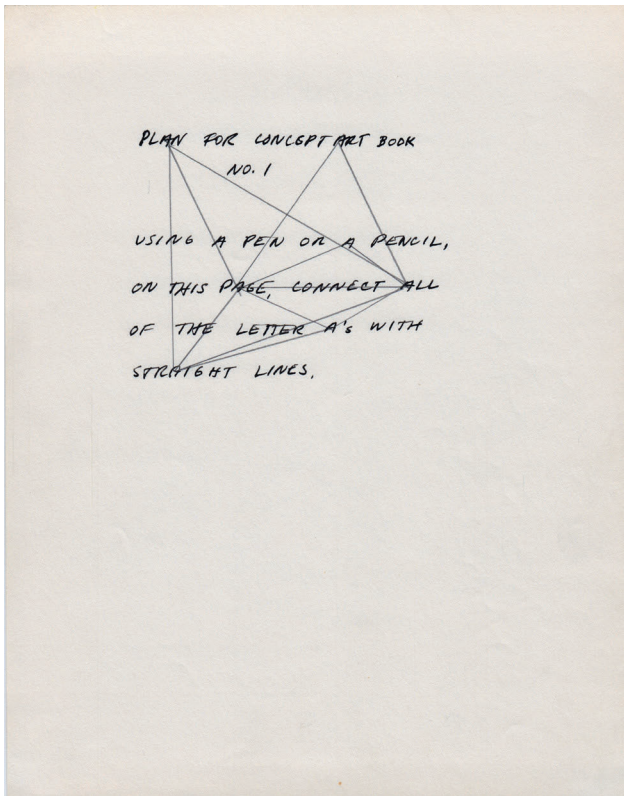 PLAN FOR CONCEPT ART BOOK
NO. 1
USING A PEN OR A PENCIL,
ON THIS PAGE, CONNECT ALL
OF THE LETTER A's WITH
STRAIGHT LINES.